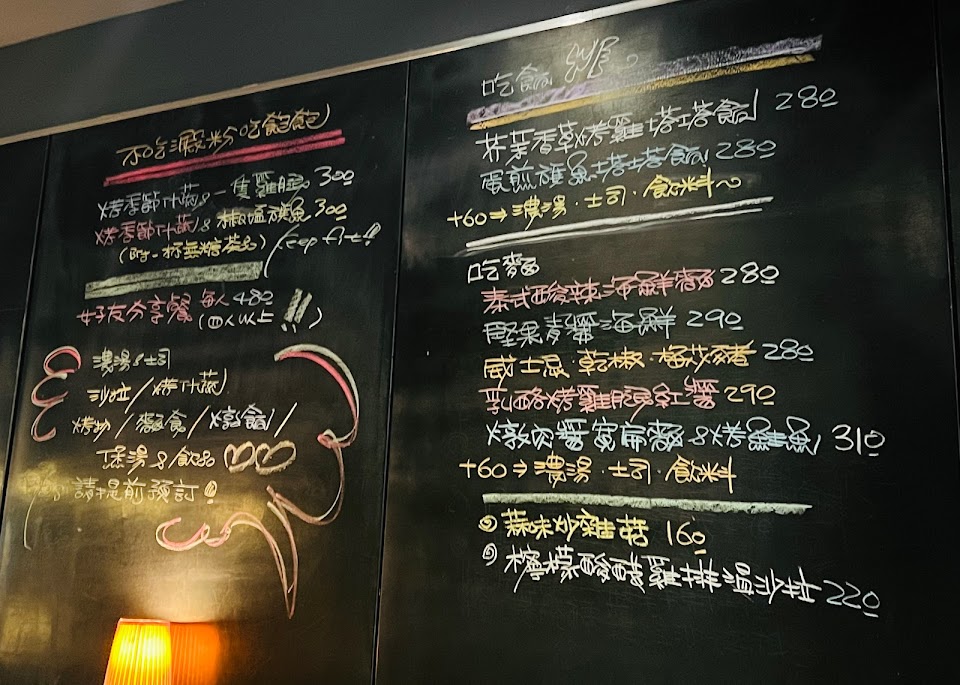 不吃澱粉吃飽飽
烤季節什蔬&一隻雞腿 300
烤季節什蔬&椒鹽旗魚 300
(附一杯無糖茶品) Keep fit!!
好友分享餐 每人480
(四人以上!!)
濃湯&土司
沙拉/烤什蔬/
烤物/麵食/燉飯/
煲湯&飲品
請提前預訂!
吃飯
芥茉香草烤雞塔塔飯 280
蛋煎旗魚塔塔飯 280
+60→濃湯·土司·飲料~
吃麵
泰式酸辣海鮮麵 280
堅果青醬海鮮 290
威士忌乾椒梅花豬 280
乳酪烤雞腿紅醬 290
燉肉醬寬扁麵&烤鮭魚 310
+60→濃湯·土司·飲料
蒜味炒雜菇 160
檸檬酸醋雞排溫沙拉 220